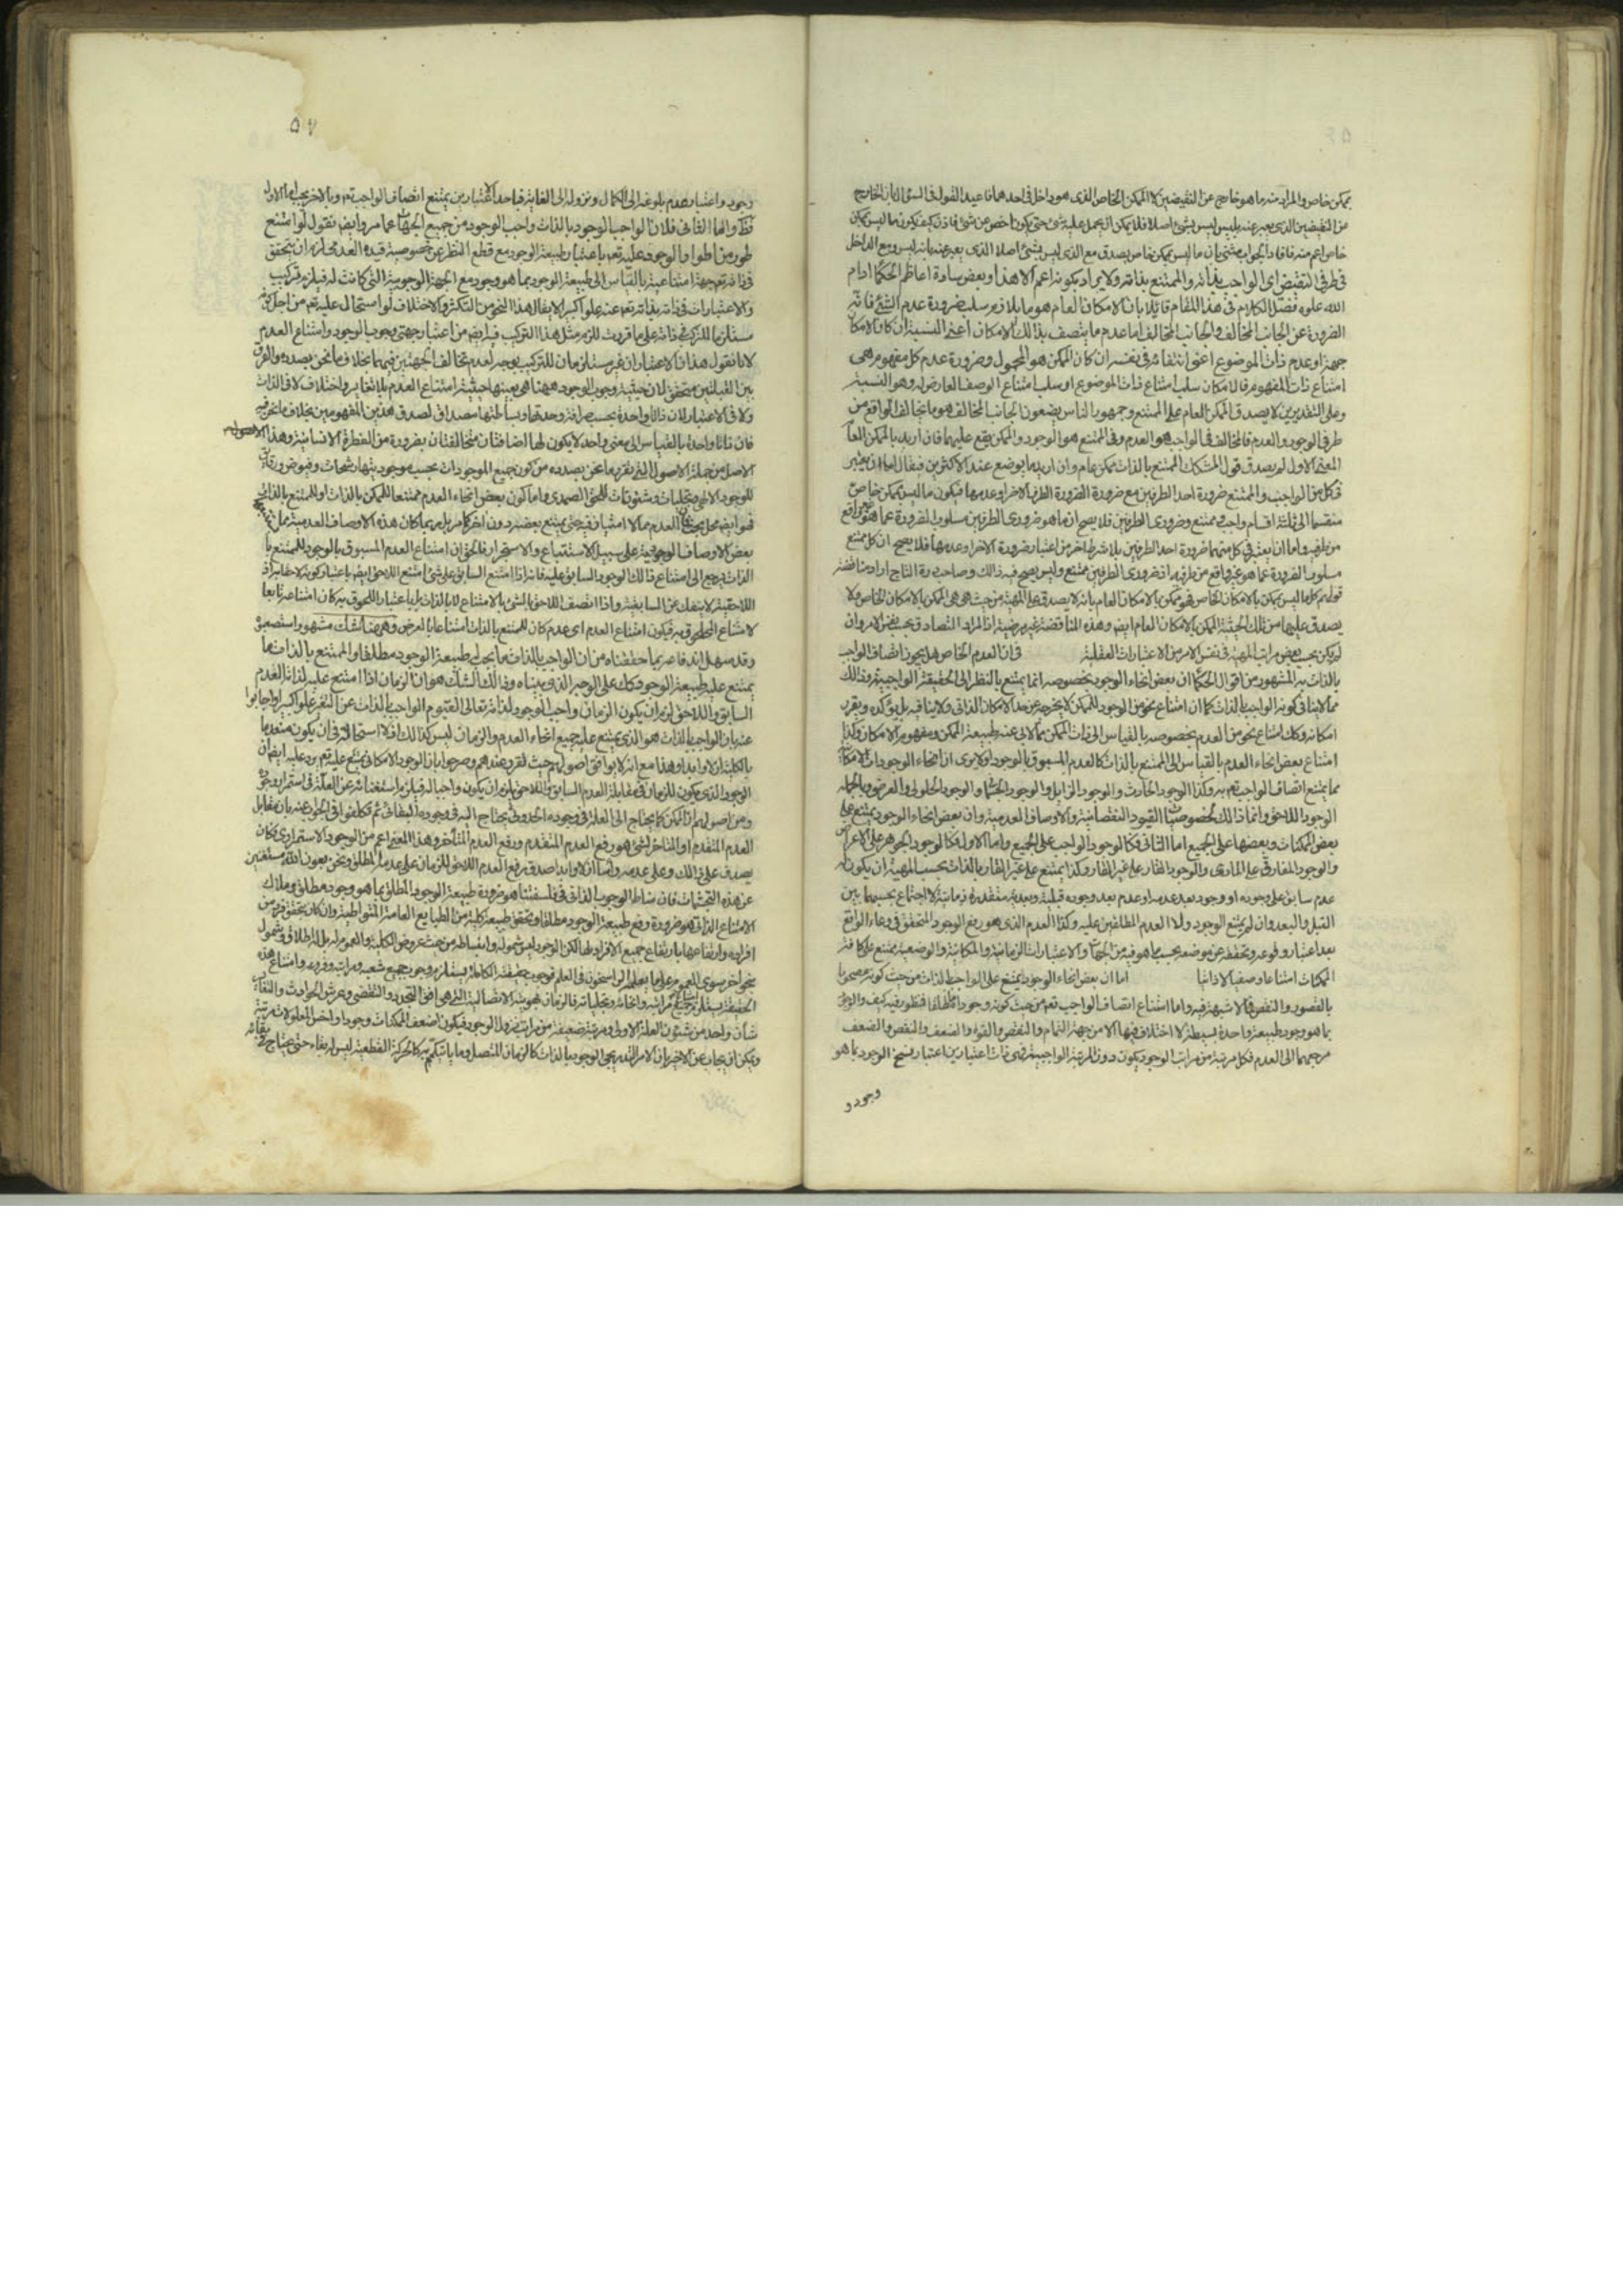 بممكن خاص والمراد منه ما هو خارج عن النقيضين لا الممكن الخاص الذى هو داخل فى احدهما فاعيد القول فى السؤال بان الخارج
من النقيضين الذى يعبر عنه بليس ليس بشئ اصلا فلا يمكن ان يحمل عليه شئ حتى يكون اخص من شئ فاذن كيف يكون ما ليس بممكن
خاص اعم منه فافاد الجواب ان ما ليس بممكن خاص يصدق مع الذى ليس بشئ اصلا الذى يعبر عنه بانه ليس ومع الداخل
فى طرفى النقيض اى الواجب بذاته والممتنع بذاته ولا يراد بكونه اعم الا هذا وبعض سادة اعاظم الحكماء ادام
الله علوه فصّل الكلام فى هذا المقام قائلا بان الامكان العام هو ما يلازم سلب ضرورة عدم الشئ فانه
الضرورة عن الجانب المخالف والجانب المخالف اما عدم ما يتصف بذلك الامكان اعنى النسبة ان كان الامكان
جهة او عدم ذات الموضوع اعنى انتفائه فى نفسه ان كان الممكن هو المحمول وضرورة عدم كل مفهوم هى
امتناع ذات المفهوم فالامكان سلب امتناع ذات الموضوع او سلب امتناع الوصف العارض له وهو النسبة
وعلى التقديرين لا يصدق الممكن العام على الممتنع وجمهور الناس يضعون الجانب المخالف هو ما يخالف الواقع من
طرفى الوجود والعدم فالمخالف فى الواجب هو العدم وفى الممتنع هو الوجود والممكن يقع عليهما فان اريد بالممكن العام
المعنى الاول لم يصدق قول المشكك الممتنع بالذات ممكن عام وان اريد ما يوضع عند الاكثرين فيقال اما ان يعتبر
فى كل من الواجب والممتنع ضرورة احد الطرفين مع ضرورة الطرف الاخر او عدمها فيكون ما ليس بممكن خاص
منقسما الى ثلثة اقسام واجب وممتنع وضرورى الطرفين فلا يصح ان ما هو ضرورى الطرفين مسلوب الضرورة عما هو غير واقع
من طرفيه واما ان يعتبر فى كل منهما ضرورة احد الطرفين بلا شرط اخر من اعتبار ضرورة الاخر او عدمها فلا يصح ان كل ممتنع
مسلوب الضرورة عما هو غير واقع من طرفيه اذ ضرورى الطرفين ممتنع وليس يصح فيه ذلك وصاحب درة التاج اراد مناقضة
قولهم كل ما ليس بممكن بالامكان الخاص فهو ممكن بالامكان العام بانه لا يصدق على المهية من حيث هى هى الممكن بالامكان الخاص ولا
يصدق عليها من تلك الحيثية الممكن بالامكان العام ايضا وهذه المناقضة غير مرضية اذ المراد التصادق بحسب نفس الامر وان
لم يكن بحسب بعض مراتب المهية فى نفس الامر من الاعتبارات العقلية فى ان العدم الخاص هل يجوز اتصاف الواجب
بالذات به المشهور من اقوال الحكماء ان بعض انحاء الوجود بخصوصه انما يمتنع بالنظر الى الحقيقة الواجبية وذلك
مما لا ينافى كونه الواجب بالذات كما ان امتناع نحو من الوجود للممكن لا يخرجه من حد الامكان الذاتى ولا ينافيه بل يؤكده ويقرر
امكانه وكك امتناع نحو من العدم بخصوصه بالقياس الى ذات الممكن مما لا يابى عنه طبيعة الممكن ومفهوم الامكان وكذا
امتناع بعض انحاء العدم بالقياس الى الممتنع بالذات كالعدم المسبوق بالوجود او لا يرى ان انحاء الوجودات الامكانية
مما يمتنع اتصاف الواجب تعم به وكذا الوجود الحادث والوجود الزايل والوجود الجسمانى والوجود الحلولى والعرضى وبالجملة
الوجود اللاحق وانما ذلك لخصوصيات القيود النقصانية والاوصاف العدمية وان بعض انحاء الوجود يمتنع على
بعض الممكنات وبعضها على الجميع اما الثانى فكالوجود الواجب على الجميع واما الاول فكالوجود الجوهر على الاعراض
والوجود المفارقى على المادى والوجود القار على غير القار وكذا يمتنع على غير القار بالذات بحسب المهية ان يكون له
عدم سابق على وجوده او وجود بعد عدمه او عدم بعد وجوده قبلية وبعدية متقدرة زمانية لا اجتماع بحسبهما بين
القبل والبعد وان لم يمتنع الوجود ولا العدم المطلقين عليه وكذا العدم الذى هو رفع الوجود المتحقق فى وعاء الواقع
بعد اعتبار وقوعه وتحققه عن موضعه بحسب ما هو فيه من الجهات والاعتبارات الزمانية والمكانية والوضعية يمتنع على كافة
الممكنات امتناعا وصفيا لا ذاتيا اما ان بعض انحاء الوجود يمتنع على الواجب لذاته من حيث كونه مصحوبا
بالقصور والنقص فمما لا شبهة فيه واما امتناع اتصاف الواجب تعم من حيث كونه وجودا مطلقا فمنظور فيه كيف والوجود
بما هو وجود طبيعة واحدة بسيطة لا اختلاف فيها الا من جهة التمام والنقص والقوة والضعف والنقص والضعف
مرجعهما الى العدم فكل مرتبة من مراتب الوجود يكون دون المرتبة الواجبية فهى ذات اعتبارين اعتبار سنخ الوجود بما هو
وجود و
٥٧
وجود واعتبار عدم بلوغه الى الكمال ونزوله الى الغاية فباحد الاعتبارين يمتنع اتصاف الواجب تعم وبالاخر يجب اما الاول
فظ واما الثانى فلان الواجب الوجود بالذات واجب الوجود من جميع الجهات كما مر وايضا نقول لو امتنع
طور من اطوار الوجود عليه تعم باعتبار طبيعة الوجود مع قطع النظر عن خصوصية قيده العدمى لزم ان يتحقق
فى ذاته تعم جهة امتناعية بالقياس الى طبيعة الوجود بما هو وجود مع الجهة الوجوبية التى كانت له فيلزم تركيب
والاعتبارات فى ذاته بذاته تعم عنه علوا كبيرا لا يقال هذا النحو من التكثر والاختلاف لو استحال عليه تعم من اجل كونه
مستلزما للتركب فى ذاته على ما قررت للزم مثل هذا التركيب فيه ايضا من اعتبار جهتى وجوب الوجود وامتناع العدم
لانا نقول هذان الاعتباران غير مستلزمان للتركيب بوجه لعدم تخالف الجهتين فيهما بخلاف ما نحن بصدده والفرق
بين القبيلتين متحقق لان حيثية وجوب الوجود ههنا هى بعينها حيثية امتناع العدم بلا تغاير واختلاف لا فى الذات
ولا فى الاعتبار لان ذاتا واحدة بحسب صرافة وحدتها وبساطتها مصداق لصدق هذين المفهومين بخلاف ما نحن فيه
فان ذاتا واحدة بالقياس الى معنى واحد لا يكون لها اضافتان متخالفتان بضرورة من الفطرة الانسانية وهذا
الاصل من جملة الاصول التى تقرير ما نحن بصدده من كون جميع الموجودات بحسب موجوديتها رشحات وفيوض ورقائق
للوجود الالهى وتجليات وشئونات للحق الصمدى واما كون بعض انحاء العدم ممتنعا للممكن بالذات او للممتنع بالذات
فهو ايضا محل بحث فان العدم مما لا امتياز فيه حتى يمتنع بعضه دون اخر كما مر بل ربما كان هذه الاوصاف العدمية
بعض الاوصاف الوجودية على سبيل الاستتباع والاستجرار فالحق ان امتناع العدم المسبوق بالوجود للممتنع با
الذات يرجع الى امتناع ذلك الوجود السابق عليه فانه اذا امتنع السابق على شئ امتنع اللاحق ايضا باعتبار كونه لاحقا به اذ
اللاحقية لا ينفك عن السابقية واذا اتصف اللاحق بالشئ بالامتناع لا بالذات بل باعتبار اللحوق به كان امتناعه تابعا
لامتناع الملحوق به فيكون امتناع العدم اى عدم كان للممتنع بالذات امتناعا بالعرض وههنا شك مشهور استصعبوا
وقد سهل اندفاعه بما حققناه من ان الواجب بالذات ما يجب له طبيعة الوجود مطلقا والممتنع بالذات ما
يمتنع عليه طبيعة الوجود كك على الوجه الذى بيناه وذلك الشك هو ان الزمان اذا امتنع عليه لذاته العدم
السابق واللاحق لزم ان يكون الزمان واجب الوجود لذاته تعالى القيوم الواجب بالذات عن التغير علوا كبيرا واجابوا
عنه بان الواجب بالذات هو الذى يمتنع عليه جميع انحاء العدم والزمان ليس كذلك اذ لا استحالة فى ان يكون منعدما
بالكلية ازلا وابدا وهذا مع انه لا يوافق اصولهم حيث تقرر عندهم وصرحوا بان الوجود الامكانى يمتنع عليه تعم يرد عليه ايضا ان
الوجود الذى يكون للزمان فى مقابلة العدم السابق واللاحق يلزم ان يكون واجبا له فيلزم استغنائه عن العلة فى استمرار وجوده
ومن اصولهم ان الممكن كما يحتاج الى العلة فى وجوده الحدوثى يحتاج اليه فى وجوده البقائى ثم تكلفوا فى الجواب عنه بان مقابل
العدم المتقدم او المتاخر لشئ هو رفع العدم المتقدم ورفع العدم المتاخر وهذا المعنى اعم من الوجود الاستمرارى فكان
يصدق على ذلك وعلى عدمه راسا ازلا وابدا صدق رفع العدم اللاحق للزمان على عدمه المطلق ونحن بعون الله مستغنين
عن هذه التجشمات فان مناط الوجوب بالذاتى فى فلسفتنا هو ضرورة طبيعة الوجود المطلق بما هو وجود مطلق وملاك
الامتناع الذاتى هو ضرورة رفع طبيعة الوجود مطلقا وتحقق طبيعة كلية من الطبايع العامة المتواطية وان كان بتحقق فرد من
افراده وارتفاعها بارتفاع جميع الافراد لها لكن الوجود ليس شموله وانبساطه من حيث عروض الكلية والعموم له بل له اطلاق وشمول
بنحو اخر سوى العموم على ما يعلمه الراسخون فى العلم فوجوب حقيقته الكاملة يستلزم وجوب جميع شعبه ومراتبه وفروعه وامتناع هذه
الحقيقة يستلزم امتناع جميع مراتبه وانحائه وتجلياته فالزمان بهويته الاتصالية التى هى افق التجدد والتقضى وعرش الحوادث والتغاير
شان واحد من شئون العلة الاولى ومرتبة ضعيفة من مراتب نزول الوجود فيكون اضعف الممكنات وجودا واخس المعلولات رتبة
ويمكن ان يجاب عن الاخير بان الامر التدريجى الوجود بالذات كالزمان المتصل وما يتكمم به كالحركة القطعية ليس له بقاء حتى يحتاج فى بقائه